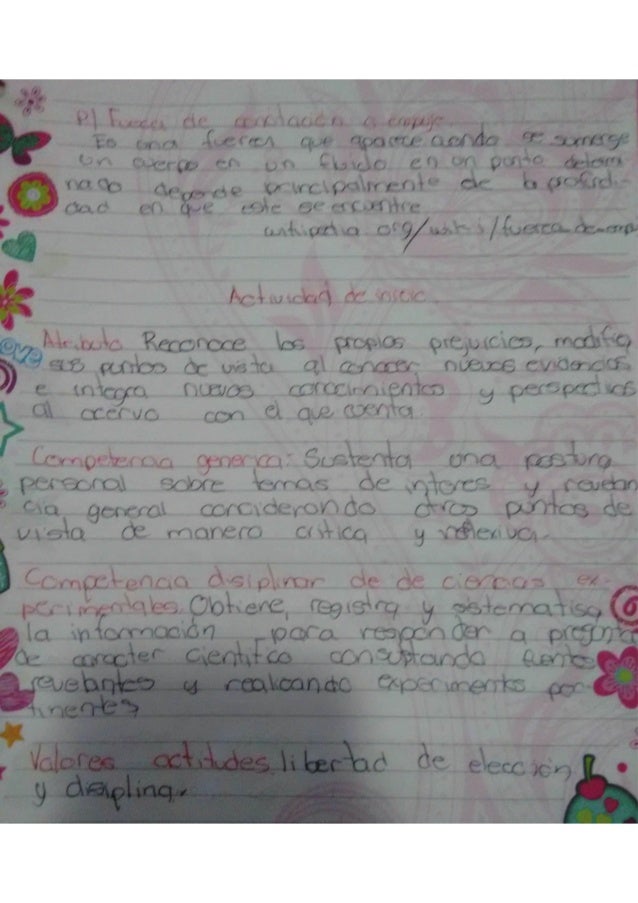 P) Fuerza de a empuje.
Es una fuerza que aparece cuando se somerge
un cuerpo en un fluido en on ponto determi
nado depende principalmente de la profundi-
dad en que este se encuentre
org/wiki/fuerza-de-emp
Actividad de inicio.
Atributo Reconoce los propios prejuicios, modifica
eve
sus puntos de vista al conocer nuevos evidencias
e integra nuevos conocimientos y perspectivas
al acervo con el que cuenta.
Competencia generica: Sustenta una postura
personal sobre temas de interes y
cia general considerando otros puntos de
vista de manera critica y reflexiva.
Competencia disiplinar de de ciencias ex-
perimentales. Obtiene, registra y sistematisa
la información para responder a pregunta
de caracter cientifco consultando fuentes
revelantes y realicando experimentos per-
tinentes
Valores actitudes libertad de elección
y disiplina.